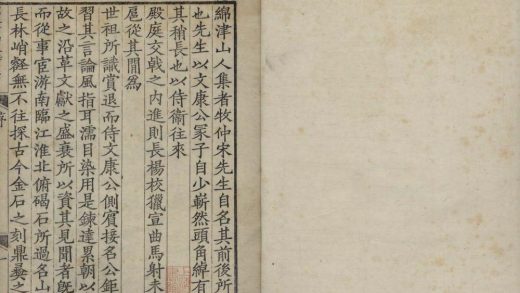 綿津山人集者牧仲宋先生自名其前後所
也先生以文康公冡子自少嶄然頭角綽有
其稍長也以侍衞往來
殿庭交戟之内進則長楊校獵宣曲馬射未
扈從其閒爲
世祖所識賞退而侍文康公側賓接名公鉅
習其言論風指耳濡目染用是鍊達累朝以
故之沿革文獻之盛衰所以資其見聞者旣
而從事宦游南臨江淮北俯碣石所過名山
長林峭壑無不往探古今金石之刻鼎彝之
序